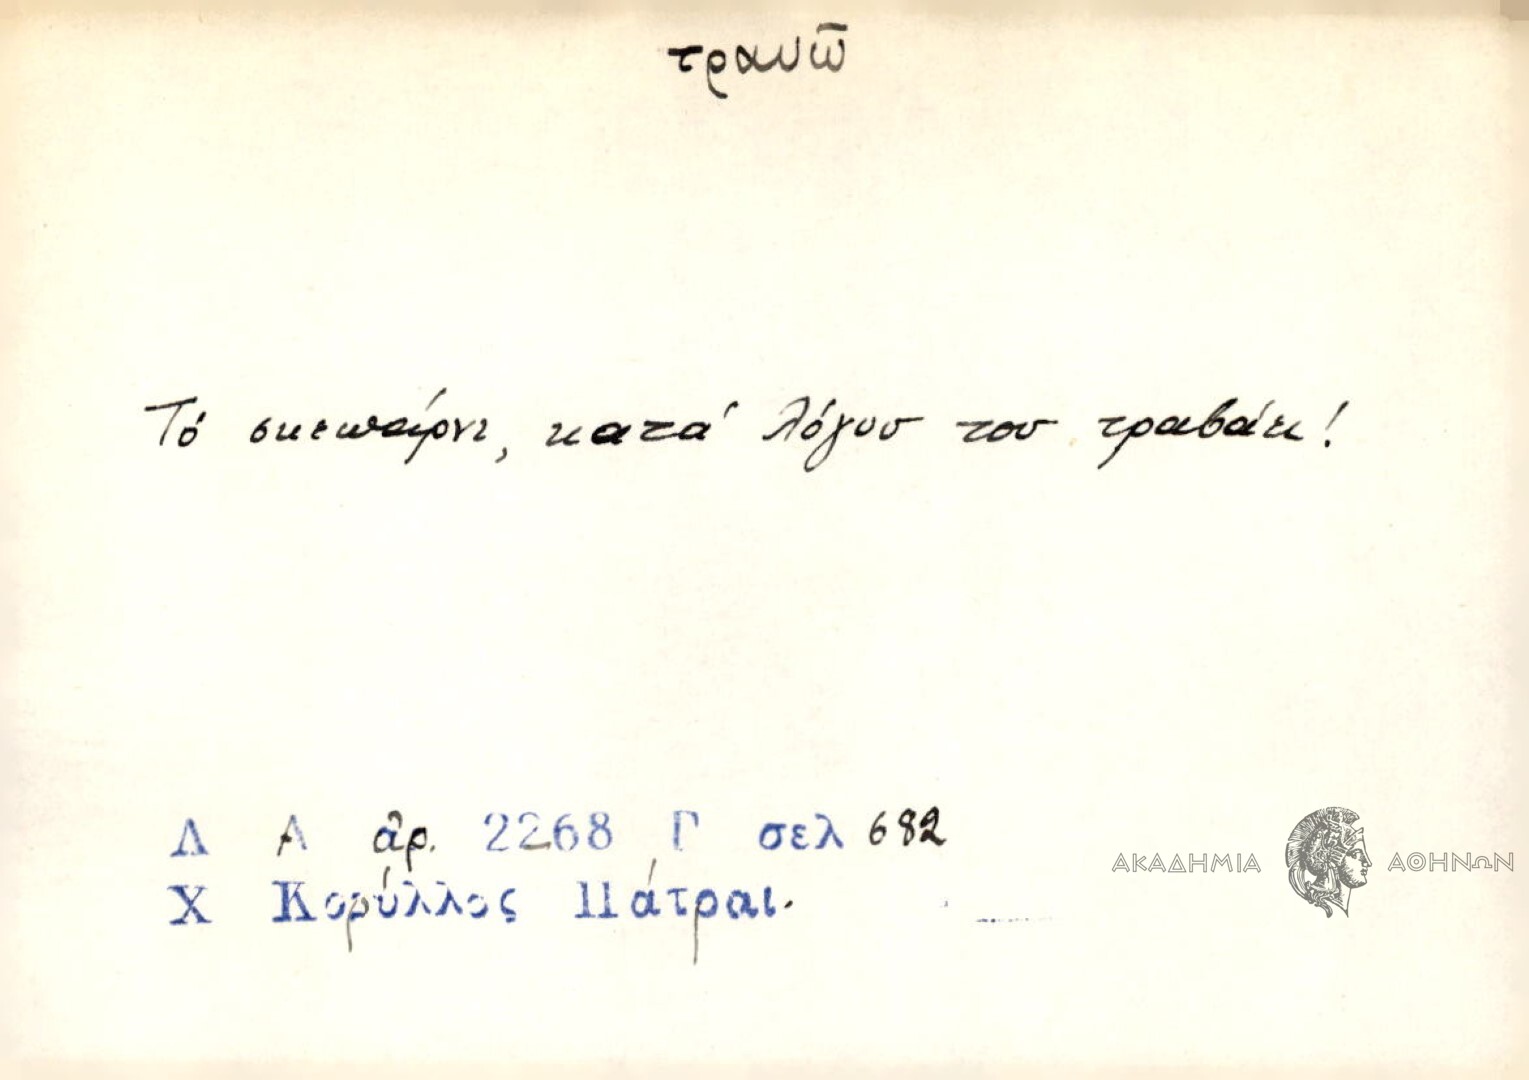 τραυῶ
Τό σκεπάρνι, κατά λόγου του τραβάει!
Λ Α ἀρ. 2268 Γ σελ 682
Χ Κορύλλος Πάτραι.
ΑΚΑΔΗΜΙΑ ΑΘΗΝΩΝ